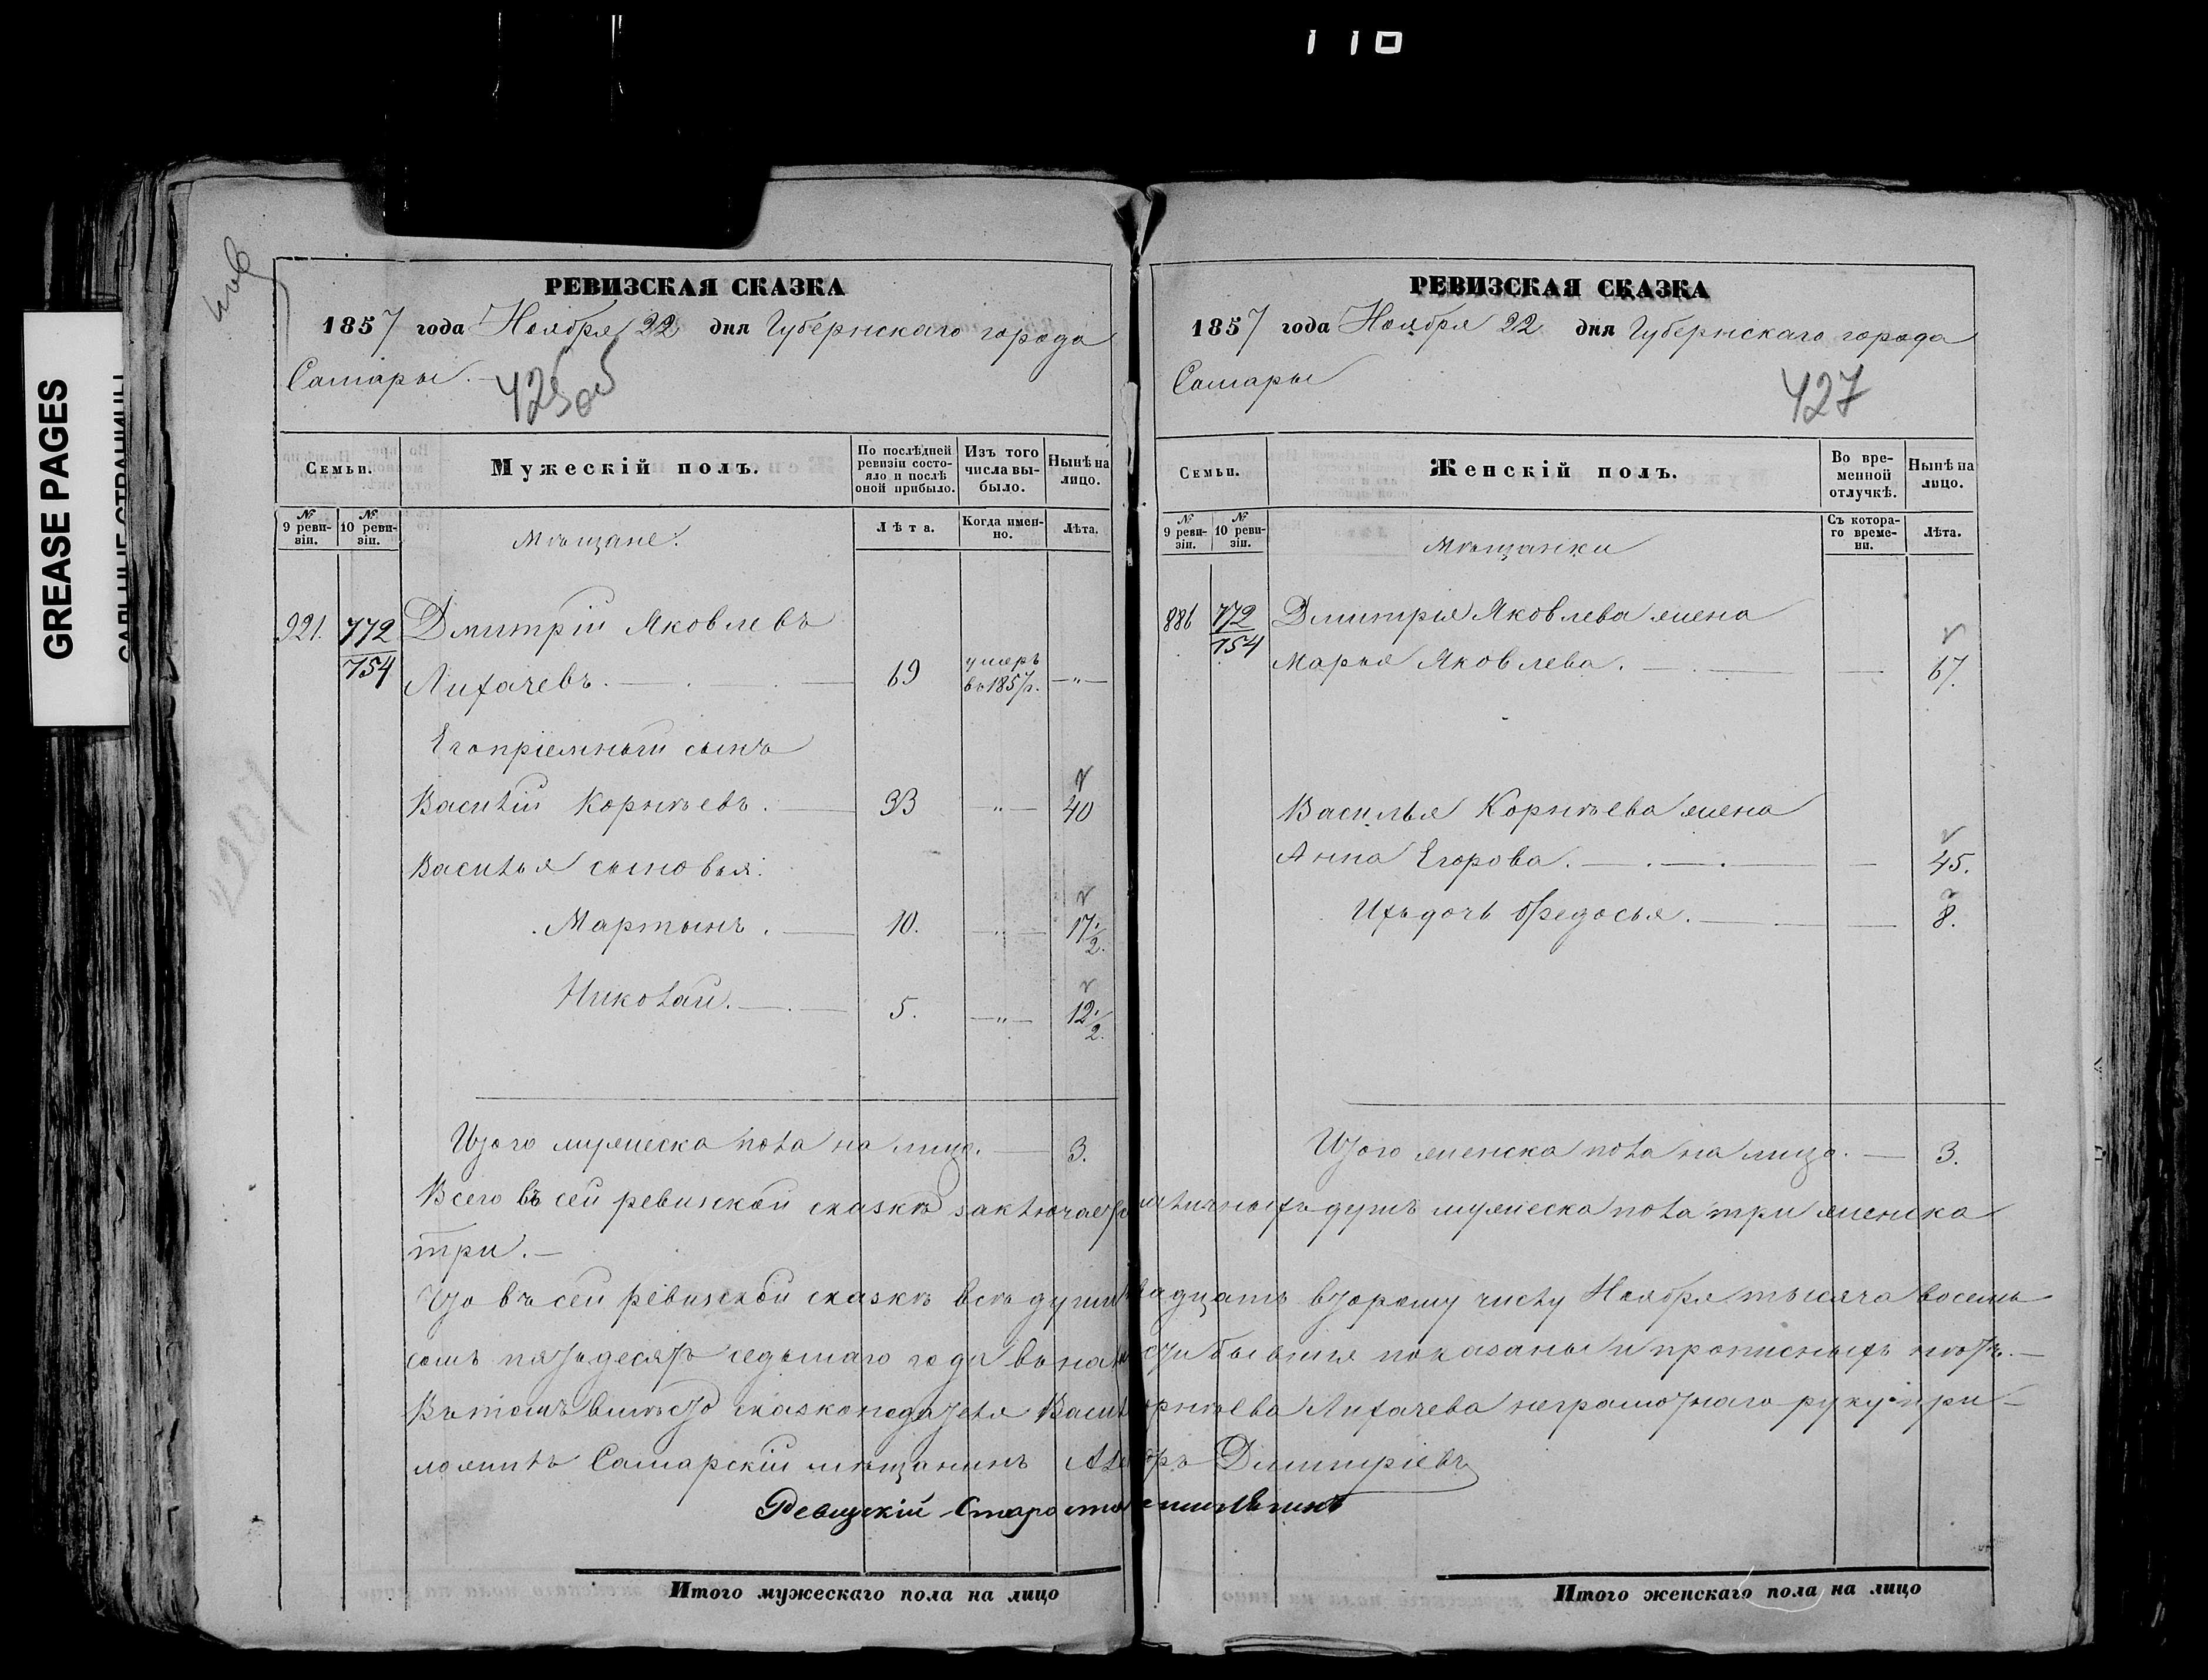 110
GREASE PAGES
РЕВИЗСКАЯ СКАЗКА
1857 года Ноября 22 дня Губернскаго города
Самары.
425об
Семьи.
Мужескій полъ.
По послѣдней ревизіи состояло и послѣ оной прибыло.
Изъ того числа выбыло.
Нынѣ на лицо.
№ 9 ревизіи.
№ 10 ревизіи.
Мѣщане.
Лѣта.
Когда именно.
Лѣта.
921. 772/754 Дмитрій Яковлевъ
Лихачевъ. 69 умеръ въ 1857 г. —"—
Его пріемный сынъ
Василій Корнѣевъ. 33 —"— 40
Василья сыновья:
Мартынъ. 10. —"— 17 1/2.
Николай. 5. —"— 12 1/2.
Итого мужеска пола на лицо. 3.
РЕВИЗСКАЯ СКАЗКА
1857 года Ноября 22 дня Губернскаго города
Самары
427
Семьи.
Женскій полъ.
Во временной отлучкѣ.
Нынѣ на лицо.
№ 9 ревизіи.
№ 10 ревизіи.
Мѣщанки
Съ котораго времени.
Лѣта.
886 772/754 Дмитрія Яковлева жена
Марья Яковлева. — 67.
Василья Корнѣева жена
Анна Егорова. — 45.
Ихъ дочь Федосья. — 8.
Итого женска пола на лицо. 3.
Всего въ сей ревизской сказкѣ заключается наличныхъ душъ мужеска пола три женска
три.—
Что въ сей ревизской сказкѣ всѣ души двадцать второму числу Ноября тысяча восемь
сотъ пятьдесятъ седьмаго года въ наличности бывшія показаны и прописныхъ нѣтъ.—
Въ томъ вмѣсто сказкоподателя Василья Корнѣева Лихачева неграмотнаго руку при-
ложилъ Самарскій мѣщанинъ Дмитріевъ
Ревизскій Староста
Итого мужескаго пола на лицо
Итого женскаго пола на лицо